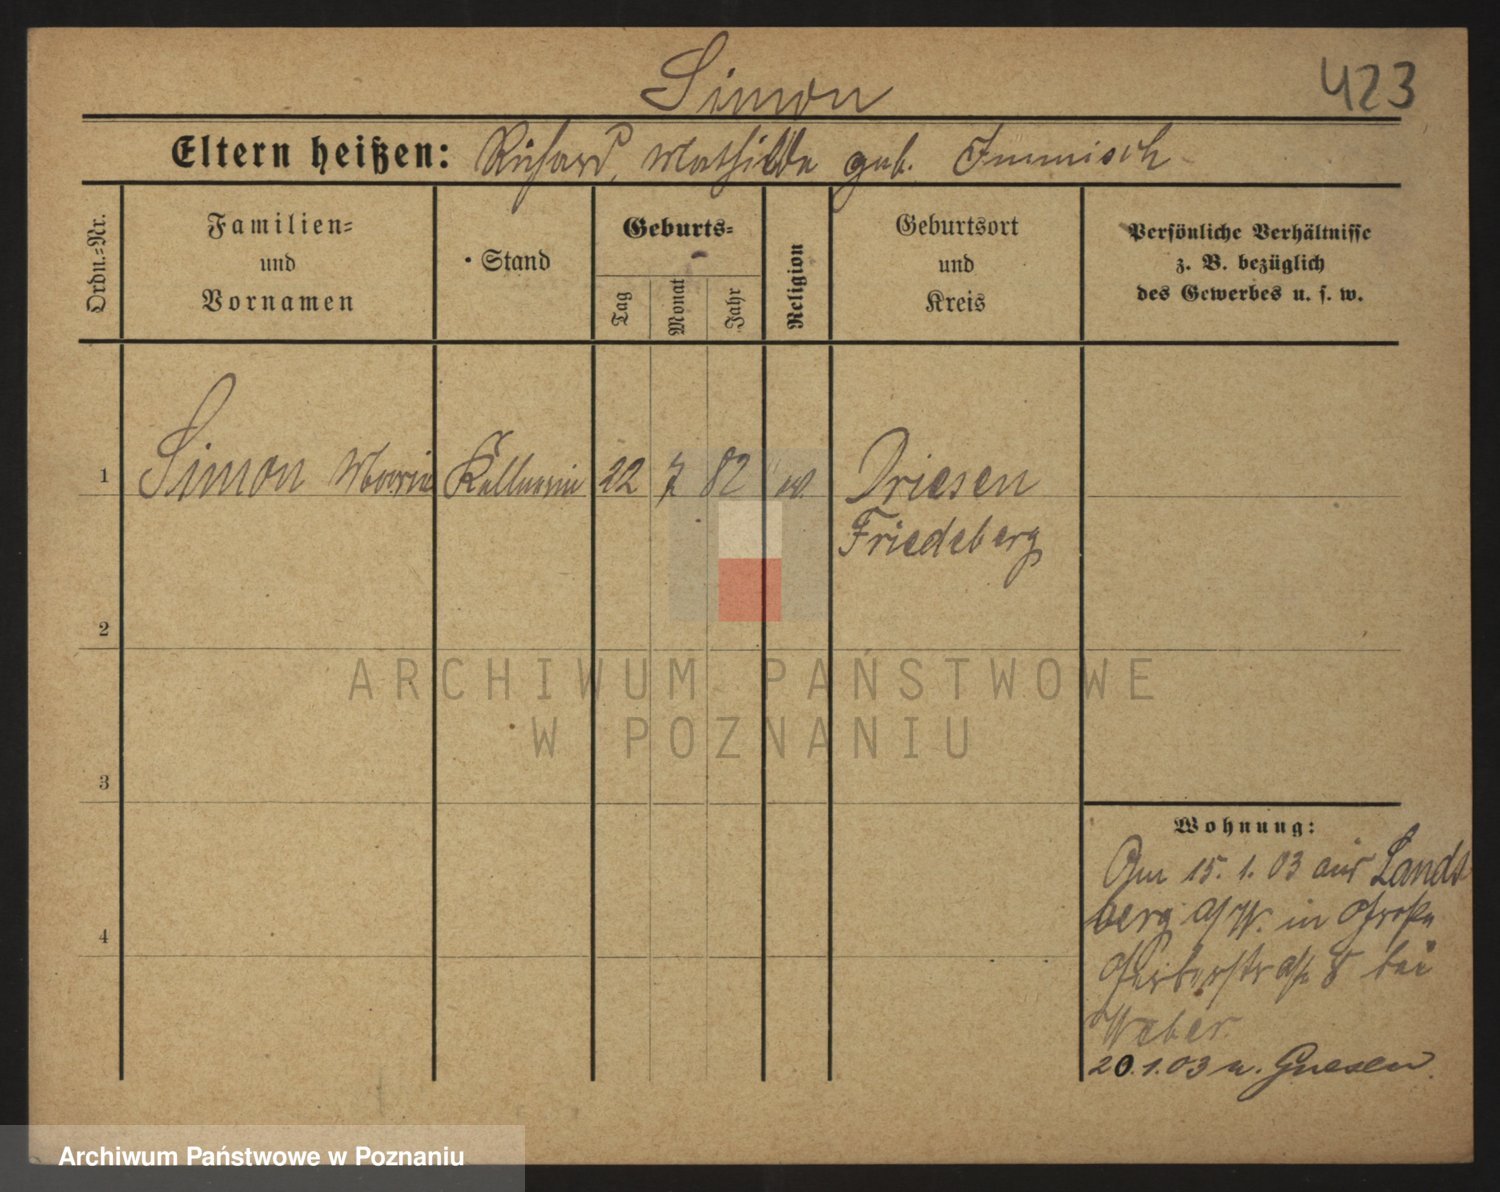 Simon
423
Eltern heißen: Richard, Mathilde geb. Immisch
Ordn.=Nr.
Familien=
und
Vornamen
Stand
Geburts=
Tag
Monat
Jahr
Religion
Geburtsort
und
Kreis
Persönliche Verhältnisse
z. B. bezüglich
des Gewerbes u. s. w.
1 Simon Marie Kellnerin 22 7 82 ev. Driesen
Friedeberg
2
ARCHIWUM PAŃSTWOWE
W POZNANIU
3
Wohnung:
Am 15. 1. 03 aus Lands
berg a/W. in Große
Gerberstraße 8 bei
Weber.
4
20.1.03 n. Gnesen.
Archiwum Państwowe w Poznaniu